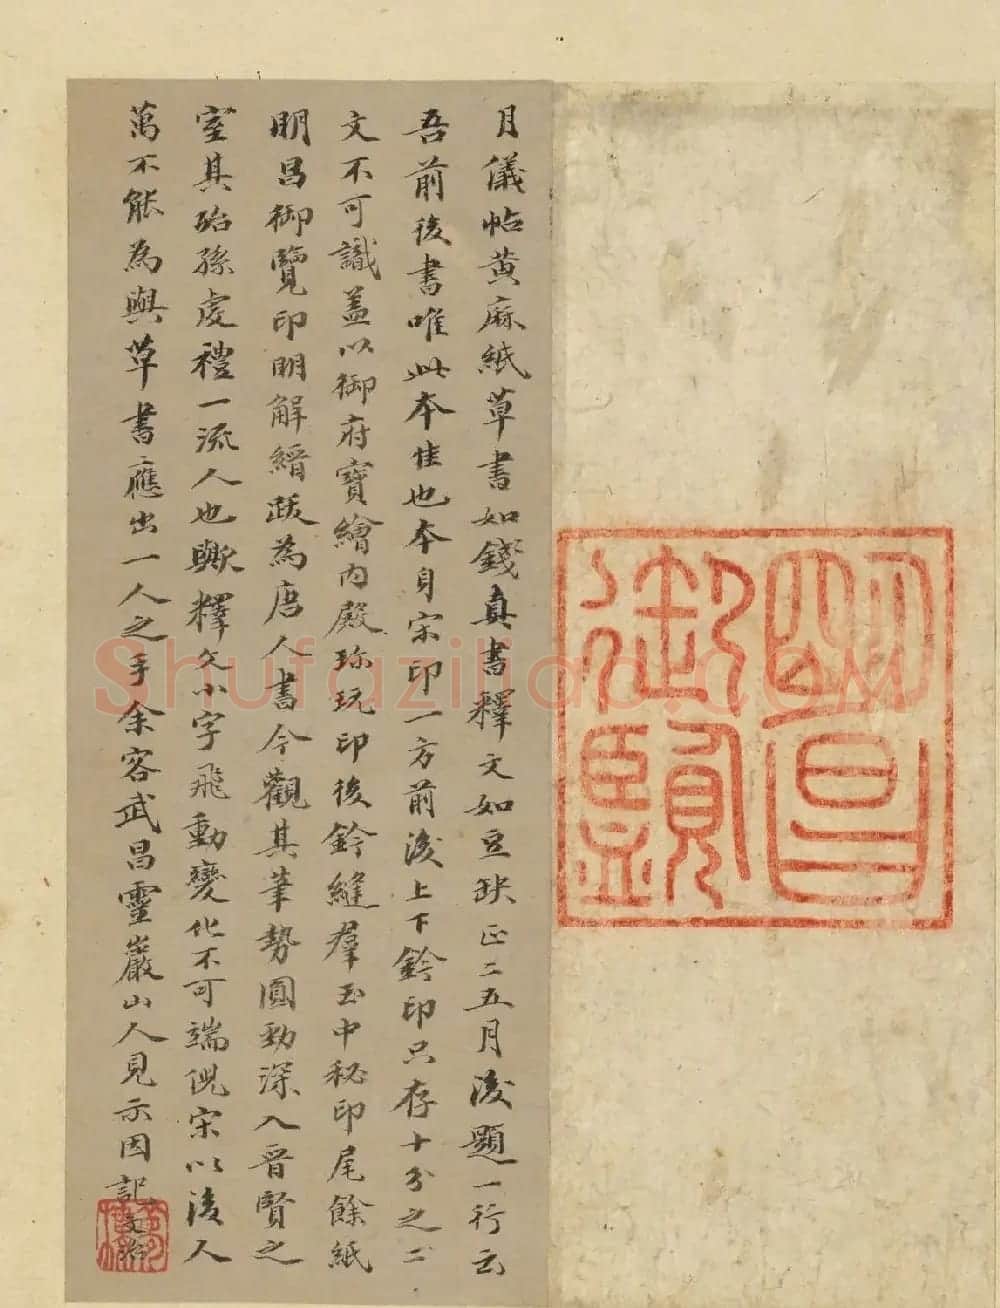 明昌御覽
月儀帖黄麻紙草書如錢真書釋文如豆缺正二五月後題一行云
吾前後書唯此本佳也本身宋印一方前後上下鈐印只存十分之二
文不可識蓋以御府寶繪内殿珎玩印後鈐縫羣玉中秘印尾餘紙
明昌御覽印明解縉跋為唐人書今觀其筆勢圓勁深入晋賢之
室其殆孫虔禮一流人也歟釋文小字飛動變化不可端倪宋以後人
萬不能為與草書應出一人之手余客武昌靈巖山人見示因記文治
Shufaziliao.com